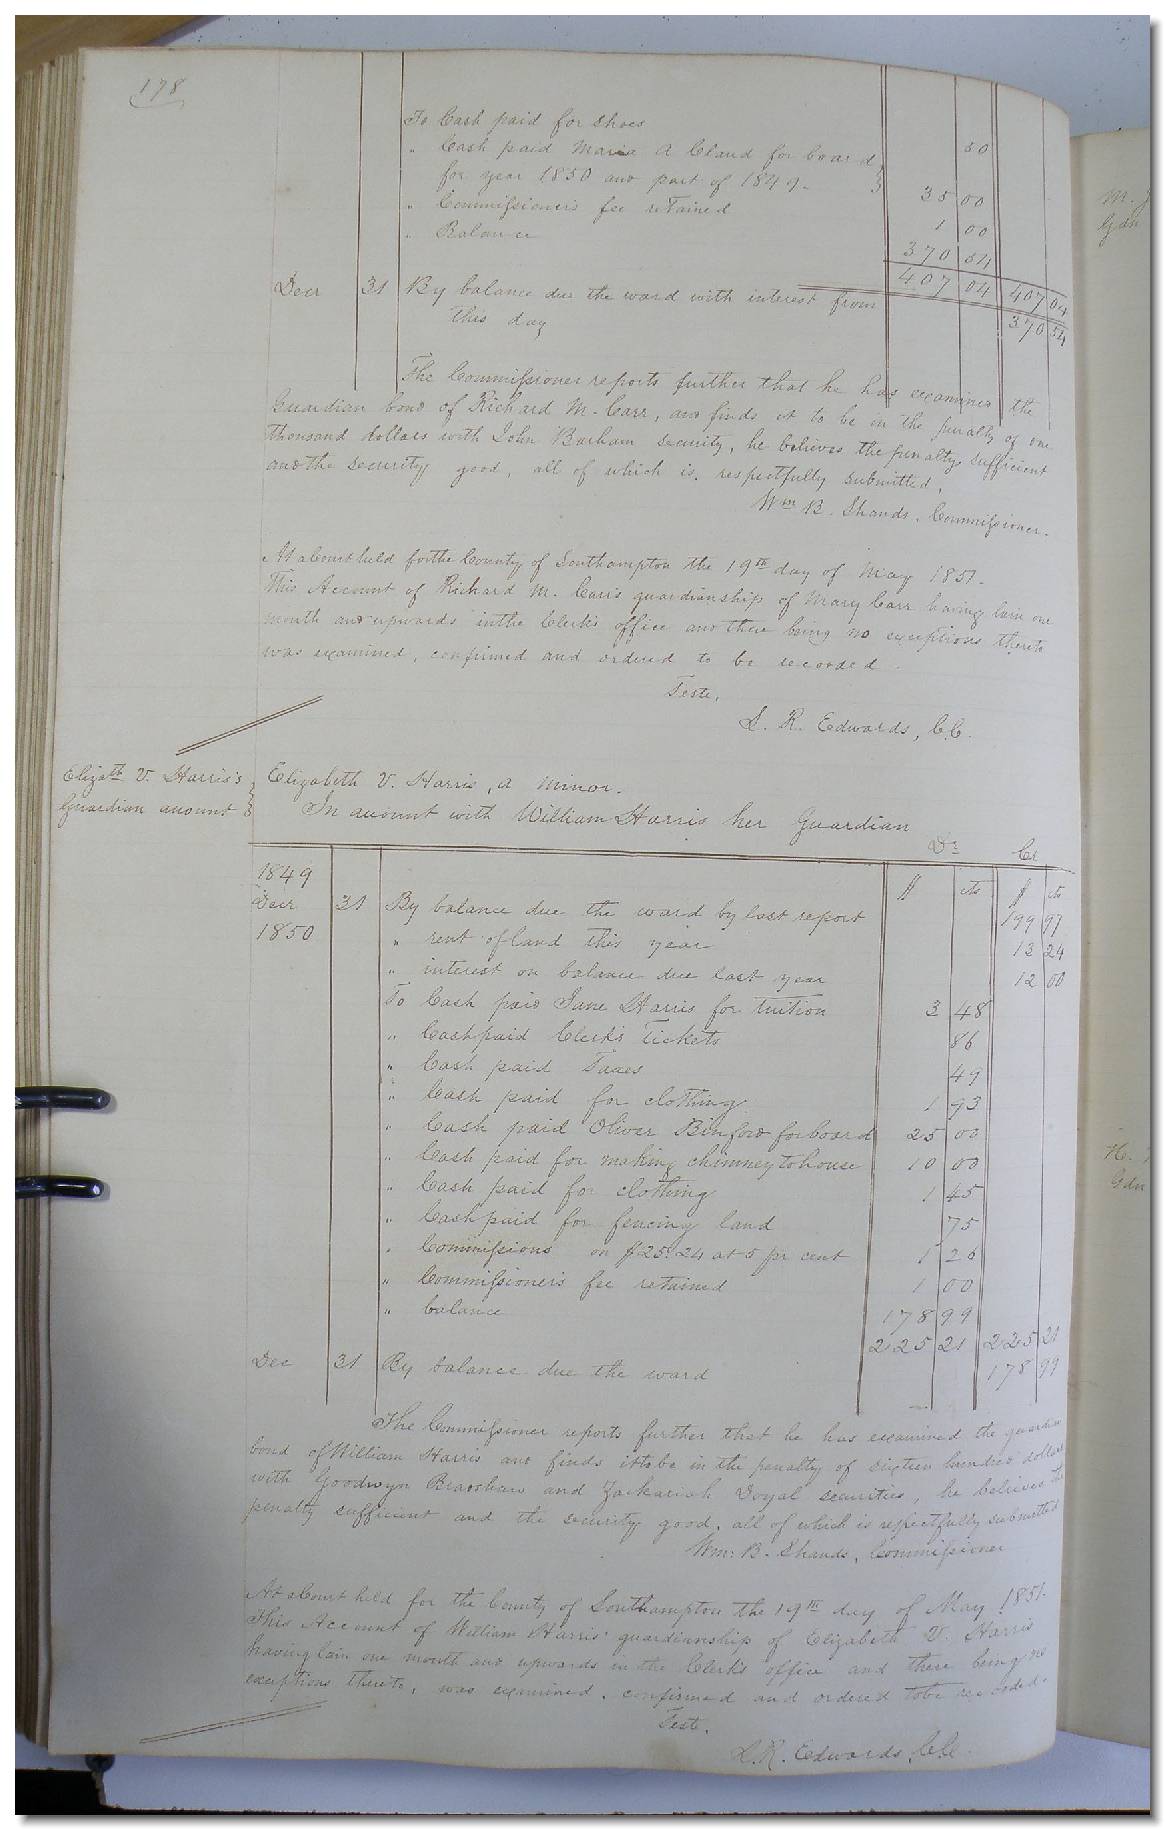 178
To Cash paid for shoes 50
" Cash paid Maria A Cland for board
for year 1850 and part of 1849. 35 00
" Commissioner's fee retained 1 00
" Balance 370 54
407 04 407 04
Decr 31 By balance due the ward with interest from
this day 370 54
The Commissioner reports further that he has examined the
Guardian bond of Richard M. Carr, and finds it to be in the penalty of one
thousand dollars with John Barham security, he believes the penalty sufficient
and the security good, all of which is respectfully submitted.
Wm B. Shands. Commissioner.
At a Court held for the County of Southampton the 19th day of May 1851.
This Account of Richard M. Carr's guardianship of Mary Carr having lain one
month and upwards in the Clerk's office and there being no exceptions thereto
was examined, confirmed and ordered to be recorded.
Teste,
L. R. Edwards, C.C.
Elizath V. Harris's
Guardian account
Elizabeth V. Harris, a minor.
In account with William Harris her Guardian
Dr Cr
1849 $ cts $ cts
Decr 31 By balance due the ward by last report 199 97
1850 " rent of land this year 13 24
" interest on balance due last year 12 00
To Cash paid Jane Harris for tuition 3 48
" Cash paid Clerk's Tickets 86
" Cash paid Taxes 49
" Cash paid for clothing 1 93
" Cash paid Oliver Binford for board 25 00
" Cash paid for making chimney to house 10 00
" Cash paid for clothing 1 45
" Cash paid for fencing land 75
" Commissions on $25.24 at 5 pr cent 1 26
" Commissioner's fee retained 1 00
" balance 178 99
225 21 225 21
Dec 31 By balance due the ward 178 99
The Commissioner reports further that he has examined the guardian
bond of William Harris and finds it to be in the penalty of sixteen hundred dollars
with Goodwyn Bradshaw and Zachariah Doyal securities, he believes the
penalty sufficient and the security good, all of which is respectfully submitted
Wm. B. Shands, Commissioner
At a Court held for the County of Southampton the 19th day of May 1851.
This Account of William Harris' guardianship of Elizabeth V. Harris
having lain one month and upwards in the Clerk's office and there being no
exceptions thereto, was examined, confirmed and ordered to be recorded.
Test.
L.R. Edwards, C.C.
M.
Gdn
H.
Gdn